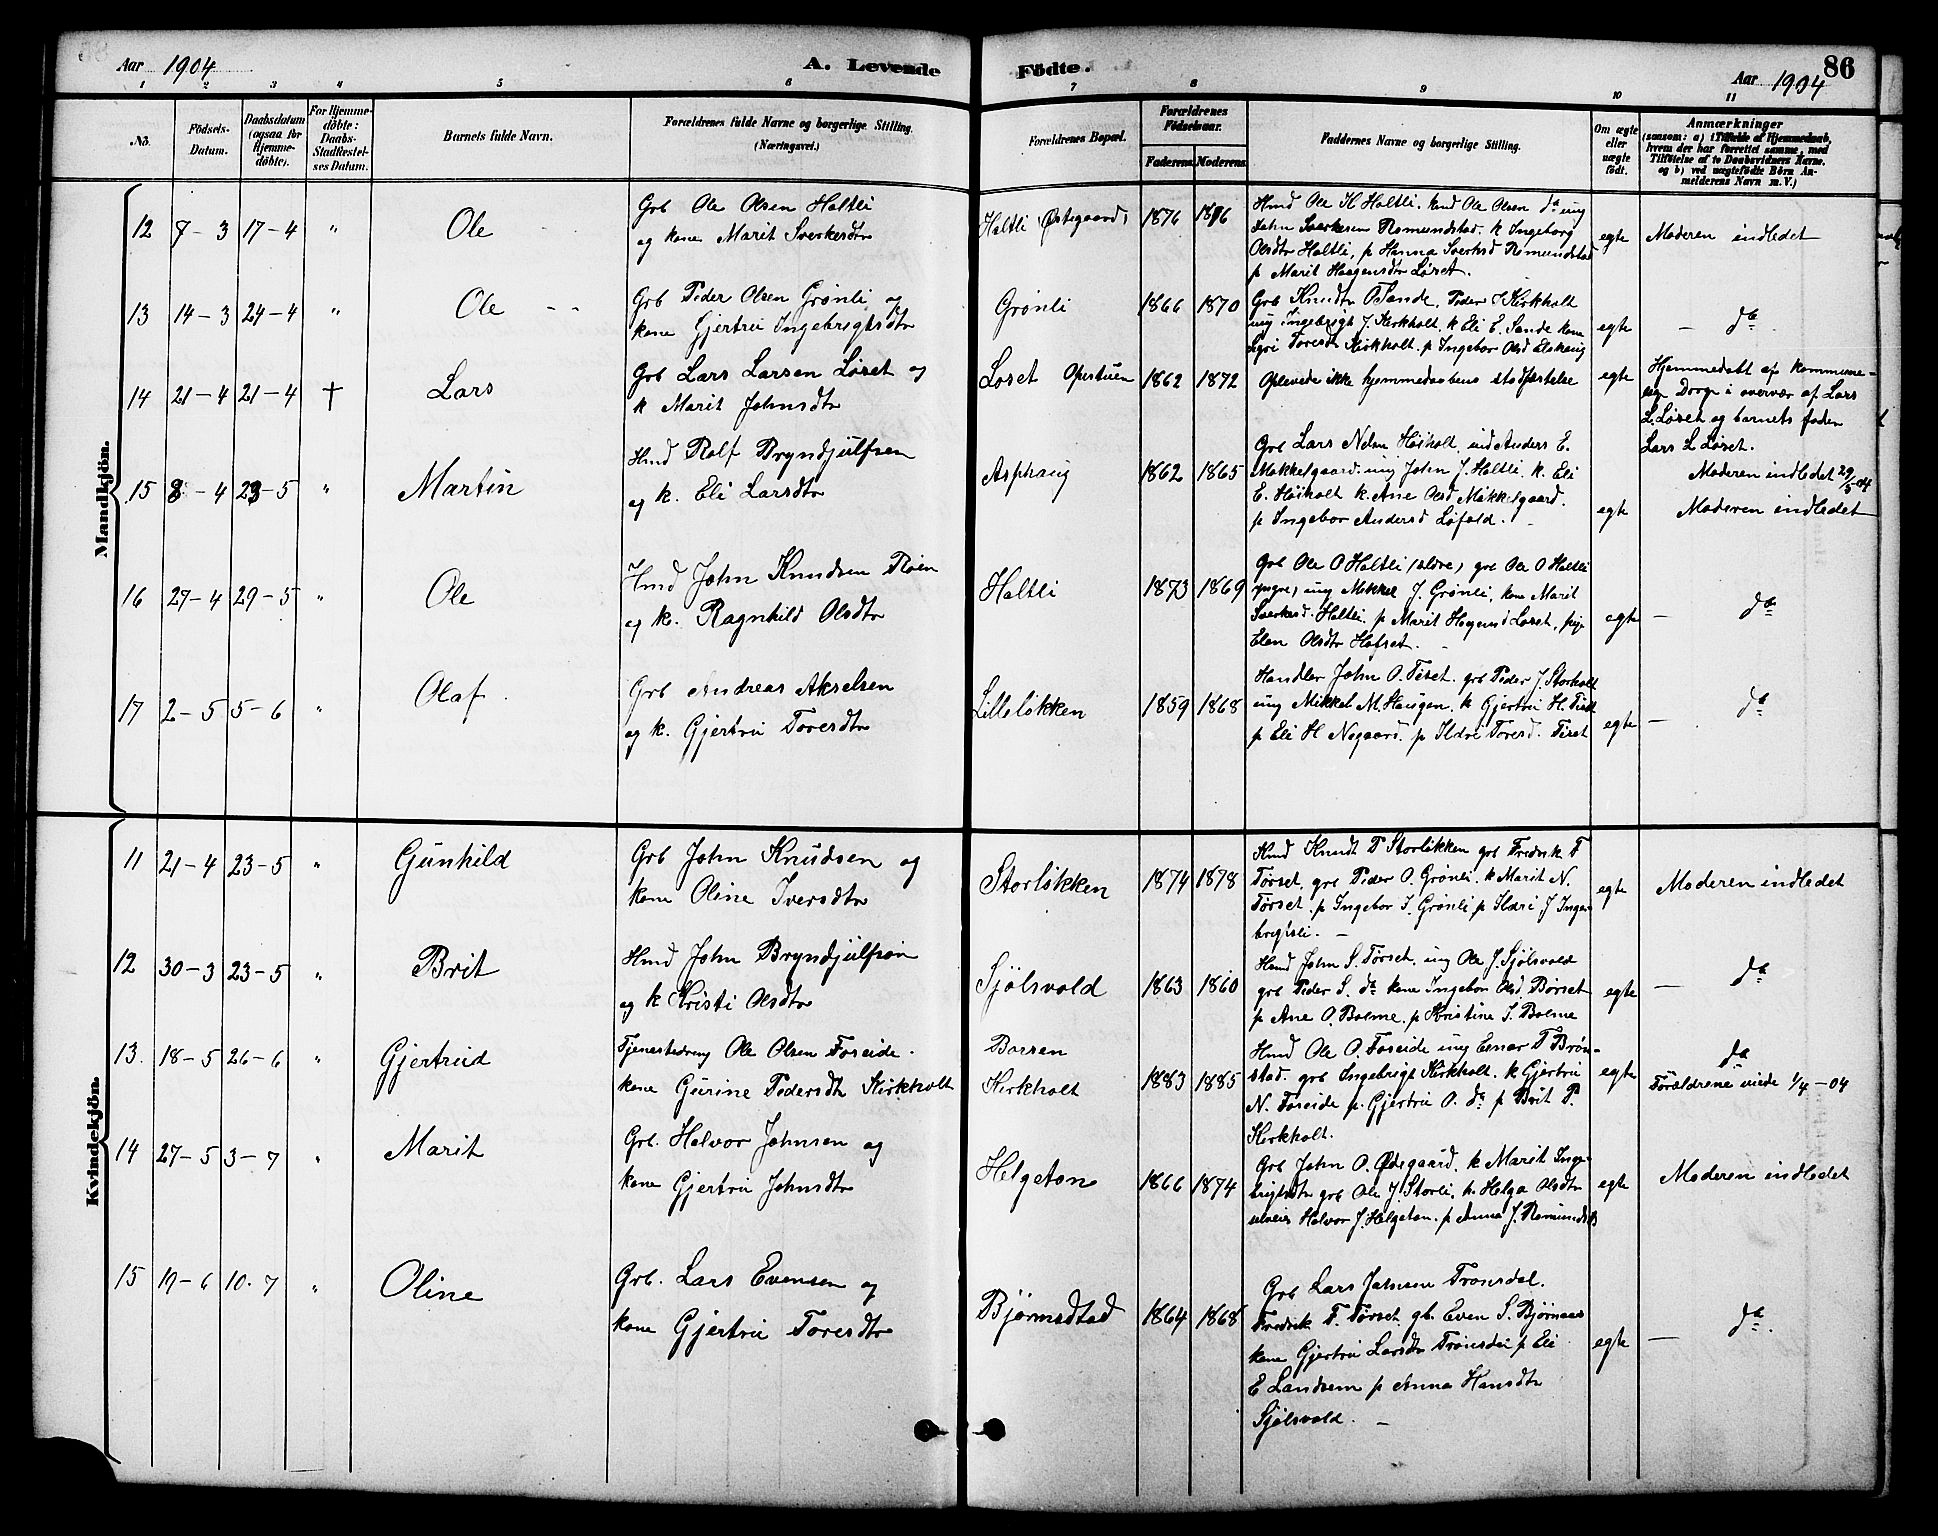 Aar 1904
A. Levende Fødte.
Aar 1904
86
1 2 3 4 5 6 7 8 9 10 11
No.
Fødsels-Datum.
Daabsdatum (ogsaa for Hjemmedøbte).
For Hjemmedøbte: Daabs-Stadfæstelses Datum.
Barnets fulde Navn.
Forældrenes fulde Navne og borgerlige Stilling. (Næringsvei.)
Forældrenes Bopæl.
Forældrenes Fødselsaar.
Faderens. Moderens.
Faddernes Navne og borgerlige Stilling.
Om ægte eller uægte født.
Anmærkninger
(saasom: a) i Tilfælde af Hjemmedaab, hvem der har forrettet samme, med Tilføielse af to Daabsvidners Navne, og b) ved uægtefødte Børn Anmelderens Navn m. V.)
Mandkjön.
12 7-3 17-4 " Ole
Grb Ole Olsen Haltli
og kone Marit Sverkesdtr
Haltli (Østegaard) 1876 1876
Hmd Ole H Haltli. kmd Ole Olsen do ung
John Sverkesen Romundstad. k Ingeborg
Olsdtr Haltli, p Hanna Sverksd Romundstad
p Marit Haagensdtr Løset.
egte Moderen indledet
13 14-3 24-4 " Ole
Grb Peder Olsen Grønli og
kone Gjertru Ingebrigtsdtr
Grønli 1866 1870
Grb Knudt O Sande, Peder J Kirkholt
ung Ingebrigt J. Kirkholt. k Eli E. Sande kone
Sigri Toresdtr Kirkholt. p Ingebor Olsd Elshaug
egte — do
14 21-4 21-4 † Lars
Grb Lars Larsen Løset og
k Marit Johnsdtr
Løset Oppistuen 1862 1872
Oplevede ikke hjemmedaabens stadfæstelse
egte
Hjemmedøbt af kommune-
læge Dorge i overvær af Lars
L. Løset og barnets fader
Lars L Løset.
Moderen indledet 29/5-04
15 8-4 23-5 " Martin
Hmd Rolf Bryndjulfsen
og k. Eli Larsdtr
Asphaug 1862 1865
Grb Lars Nelsn Høiholt, ind Anders E.
Mekkelgaard. ung John J. Haltli. k. Eli
E. Høiholt k. Ane Olsd Mekkelgaard.
p Ingebor Andersd Løfald.
egte Moderen indledet
16 27-4 29-5 " Ole
Hmd John Knudsen Røen
og k. Ragnhild Olsdtr
Haltli 1873 1869
Grb Ole O Haltli (eldre) grb Ole O Haltli
yngre) ung Mikkel J. Grønli, kone Marit
Sverkesd. Haltli. p Marit Hagensd Løset, pige
Elen Olsdtr Hafset.
egte — do
17 2-5 5-6 " Olaf
Grb Andreas Akselsen
og k. Gjertru Toresdtr
Lilleløkken 1859 1868
Handler John O. Fiset. grb Peder J. Storholt
ung Mikkel M. Haugen. k Gjertru H. Fiset
p Eli H Negaard. p Ildri Toresd. Fiset
egte — do
Kvindekjön.
11 21-4 23-5 " Gunhild
Grb John Knudsen og
kone Oline Iversdtr
Storløkken 1874 1878
Kmd Knudt T Storløkken grb Fredrik F
Tørset, grb Peder O. Grønli. k Marit N.
Tørset. p Ingebor I. Grønli p Ildri J Inge-
brigtsli.
egte Moderen indledet
12 30-3 23-5 " Brit
Hmd John Bryndjulfson
og k Kristi Olsdtr
Sjølsvold 1863 1860
Hmd John S. Tørset, ung Ole J. Sjølsvold
grb Peder S. do kone Ingebor Olsd. Børset
p Ane O. Bolme. p Kristine S. Bolme
egte — do
13. 18-5 26-6 " Gjertrud
Tjenestedreng Ole Olsen Foseide.
kone Gurine Pedersdt Kirkholt
Børsen
Kirkholt 1883 1885
Hmd Ole O. Foseide ung Einar T Brøn-
stad. grb Ingebrigt Kirkholt. k Gjertru
N. Foseide p. Gjertru O. do p Brit P.
Kirkholt.
egte do
Forældrene viede 1/4-04
14 27-5 3-7 " Marit
Grb. Halvor Johnsen og
kone Gjertru Johnsdtr
Helgeton 1866 1874
Grb John O. Ødegaard, k Marit Inge-
brigtsdtr grb Ole J. Storli, k. Helga Olsdtr
Halvor J. Helgeton. p Anna J. Romundstd
egte Moderen indledet
15 19-6 10-7 " Oline
Grb. Lars Evensen og
kone Gjertru Toresdtr
Bjørnsdtad 1864 1868
Grb Lars Johnsen Trønsdal.
Fredrik F. Tørset. gb. Even S. Bjørnaas
kone Gjertru Larsdtr Trønsdal p Eli
E Landsem p Anna Hansdtr
Sjølsvold.
egte — do